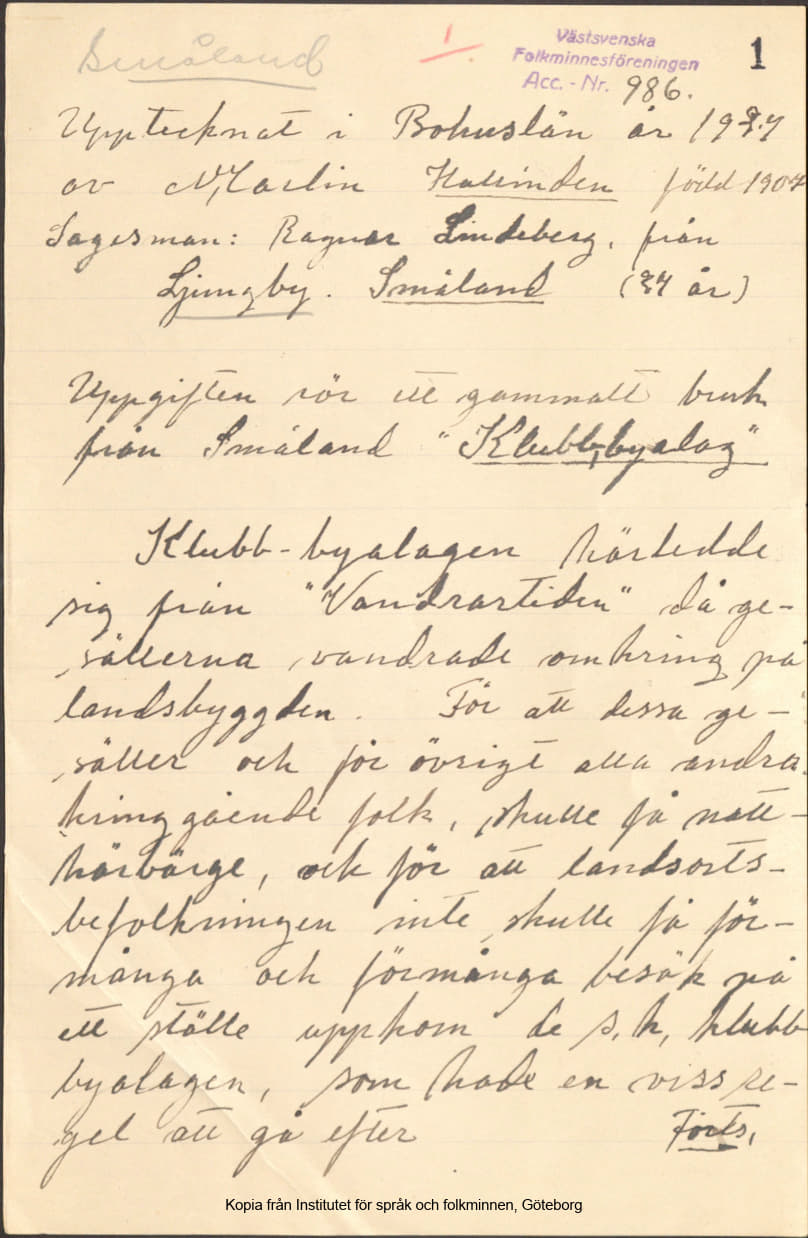 Småland
1.
Västsvenska
Folkminnesföreningen
Acc. - Nr. 986.
1
Upptecknat i Bohuslän år 1927
av Martin född 1904
Sagesman: Ragnar Lindeberg, från
Ljungby. Småland (24 år)
Uppgiften rör ett gammalt bruk
från Småland "Klubb-byalag"
Klubb-byalagen härledde
sig från "Vandrartiden" då ge-
sällerna vandrade omkring på
landsbyggden. För att dessa ge-
säller och för övrigt alla andra
kringgående folk, skulle få natt-
härbärge, och för att landsorts-
befolkningen inte skulle få för-
många och förmånga besök på
ett ställe uppkom de s.k. klubb
byalagen, som hade en viss re-
gel att gå efter Forts.
Kopia från Institutet för språk och folkminnen, Göteborg